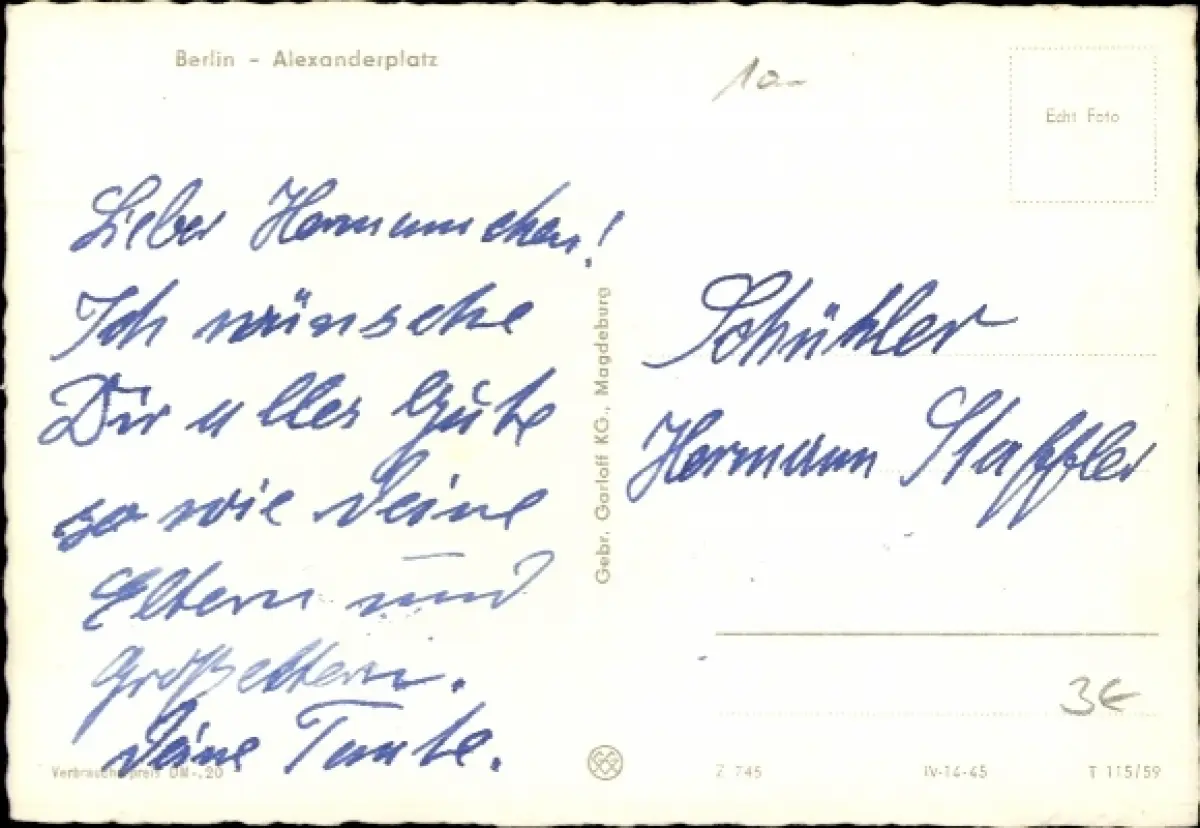 Berlin - Alexanderplatz
10-
Echt Foto
Lieber Hermannchen!
Ich wünsche
Dir alles Gute
so wie Deine
Eltern und
Großeltern.
Deine Tante.
Schühler
Hermann Staffler
Gebr. Garloff KG., Magdeburg
3€
Verbraucherpreis DM -,20
Z 745
IV-14-45
T 115/59